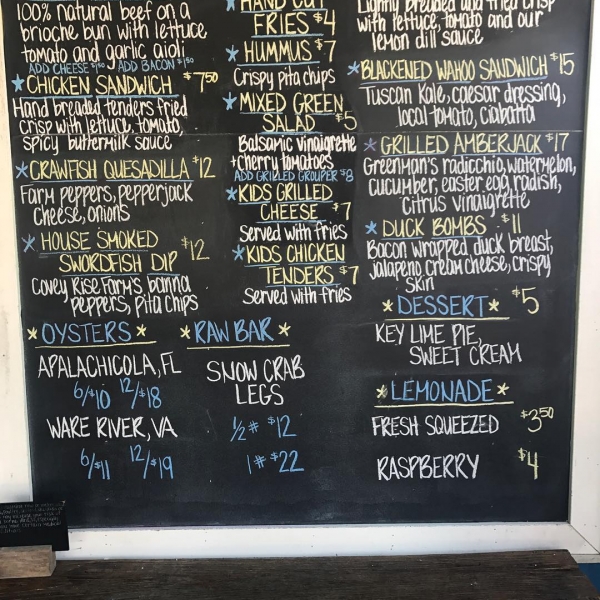 100% natural beef on a
brioche bun with lettuce
tomato and garlic aioli
CHICKEN SANDWICH $7.50
Hand breaded tenders fried
crisp with lettuce, tomato,
spicy buttermilk sauce
CRAWFISH QUESADILLA $12
Farm peppers, pepperjack
cheese, onions
HOUSE SMOKED
SWORDFISH DIP $12
Covey Rise Farm's banna
peppers, pita chips
HAND CUT
FRIES $4
HUMMUS $7
Crispy pita chips
MIXED GREEN
SALAD $5
Balsamic vinaigrette
+ cherry tomatoes
ADD GRILLED GROUPER $8
KIDS GRILLED
CHEESE $7
Served with fries
KIDS CHICKEN
TENDERS $7
Served with fries
Lightly breaded and fried crisp
with lettuce, tomato and our
lemon dill sauce
BLACKENED WAHOO SANDWICH $15
Tuscan Kale, caesar dressing,
local tomato, ciabatta
GRILLED AMBERJACK $17
Greenman's radicchio, watermelon,
cucumber, easter egg radish,
citrus vinaigrette
DUCK BOMBS $11
Bacon wrapped duck breast,
jalapeno cream cheese, crispy
skin
OYSTERS
APALACHICOLA, FL
6/$10 12/$18
WARE RIVER, VA
6/$11 12/$19
RAW BAR
SNOW CRAB
LEGS
1/2# $12
1# $22
DESSERT $5
KEY LIME PIE,
SWEET CREAM
LEMONADE
FRESH SQUEEZED $3.50
RASPBERRY $4